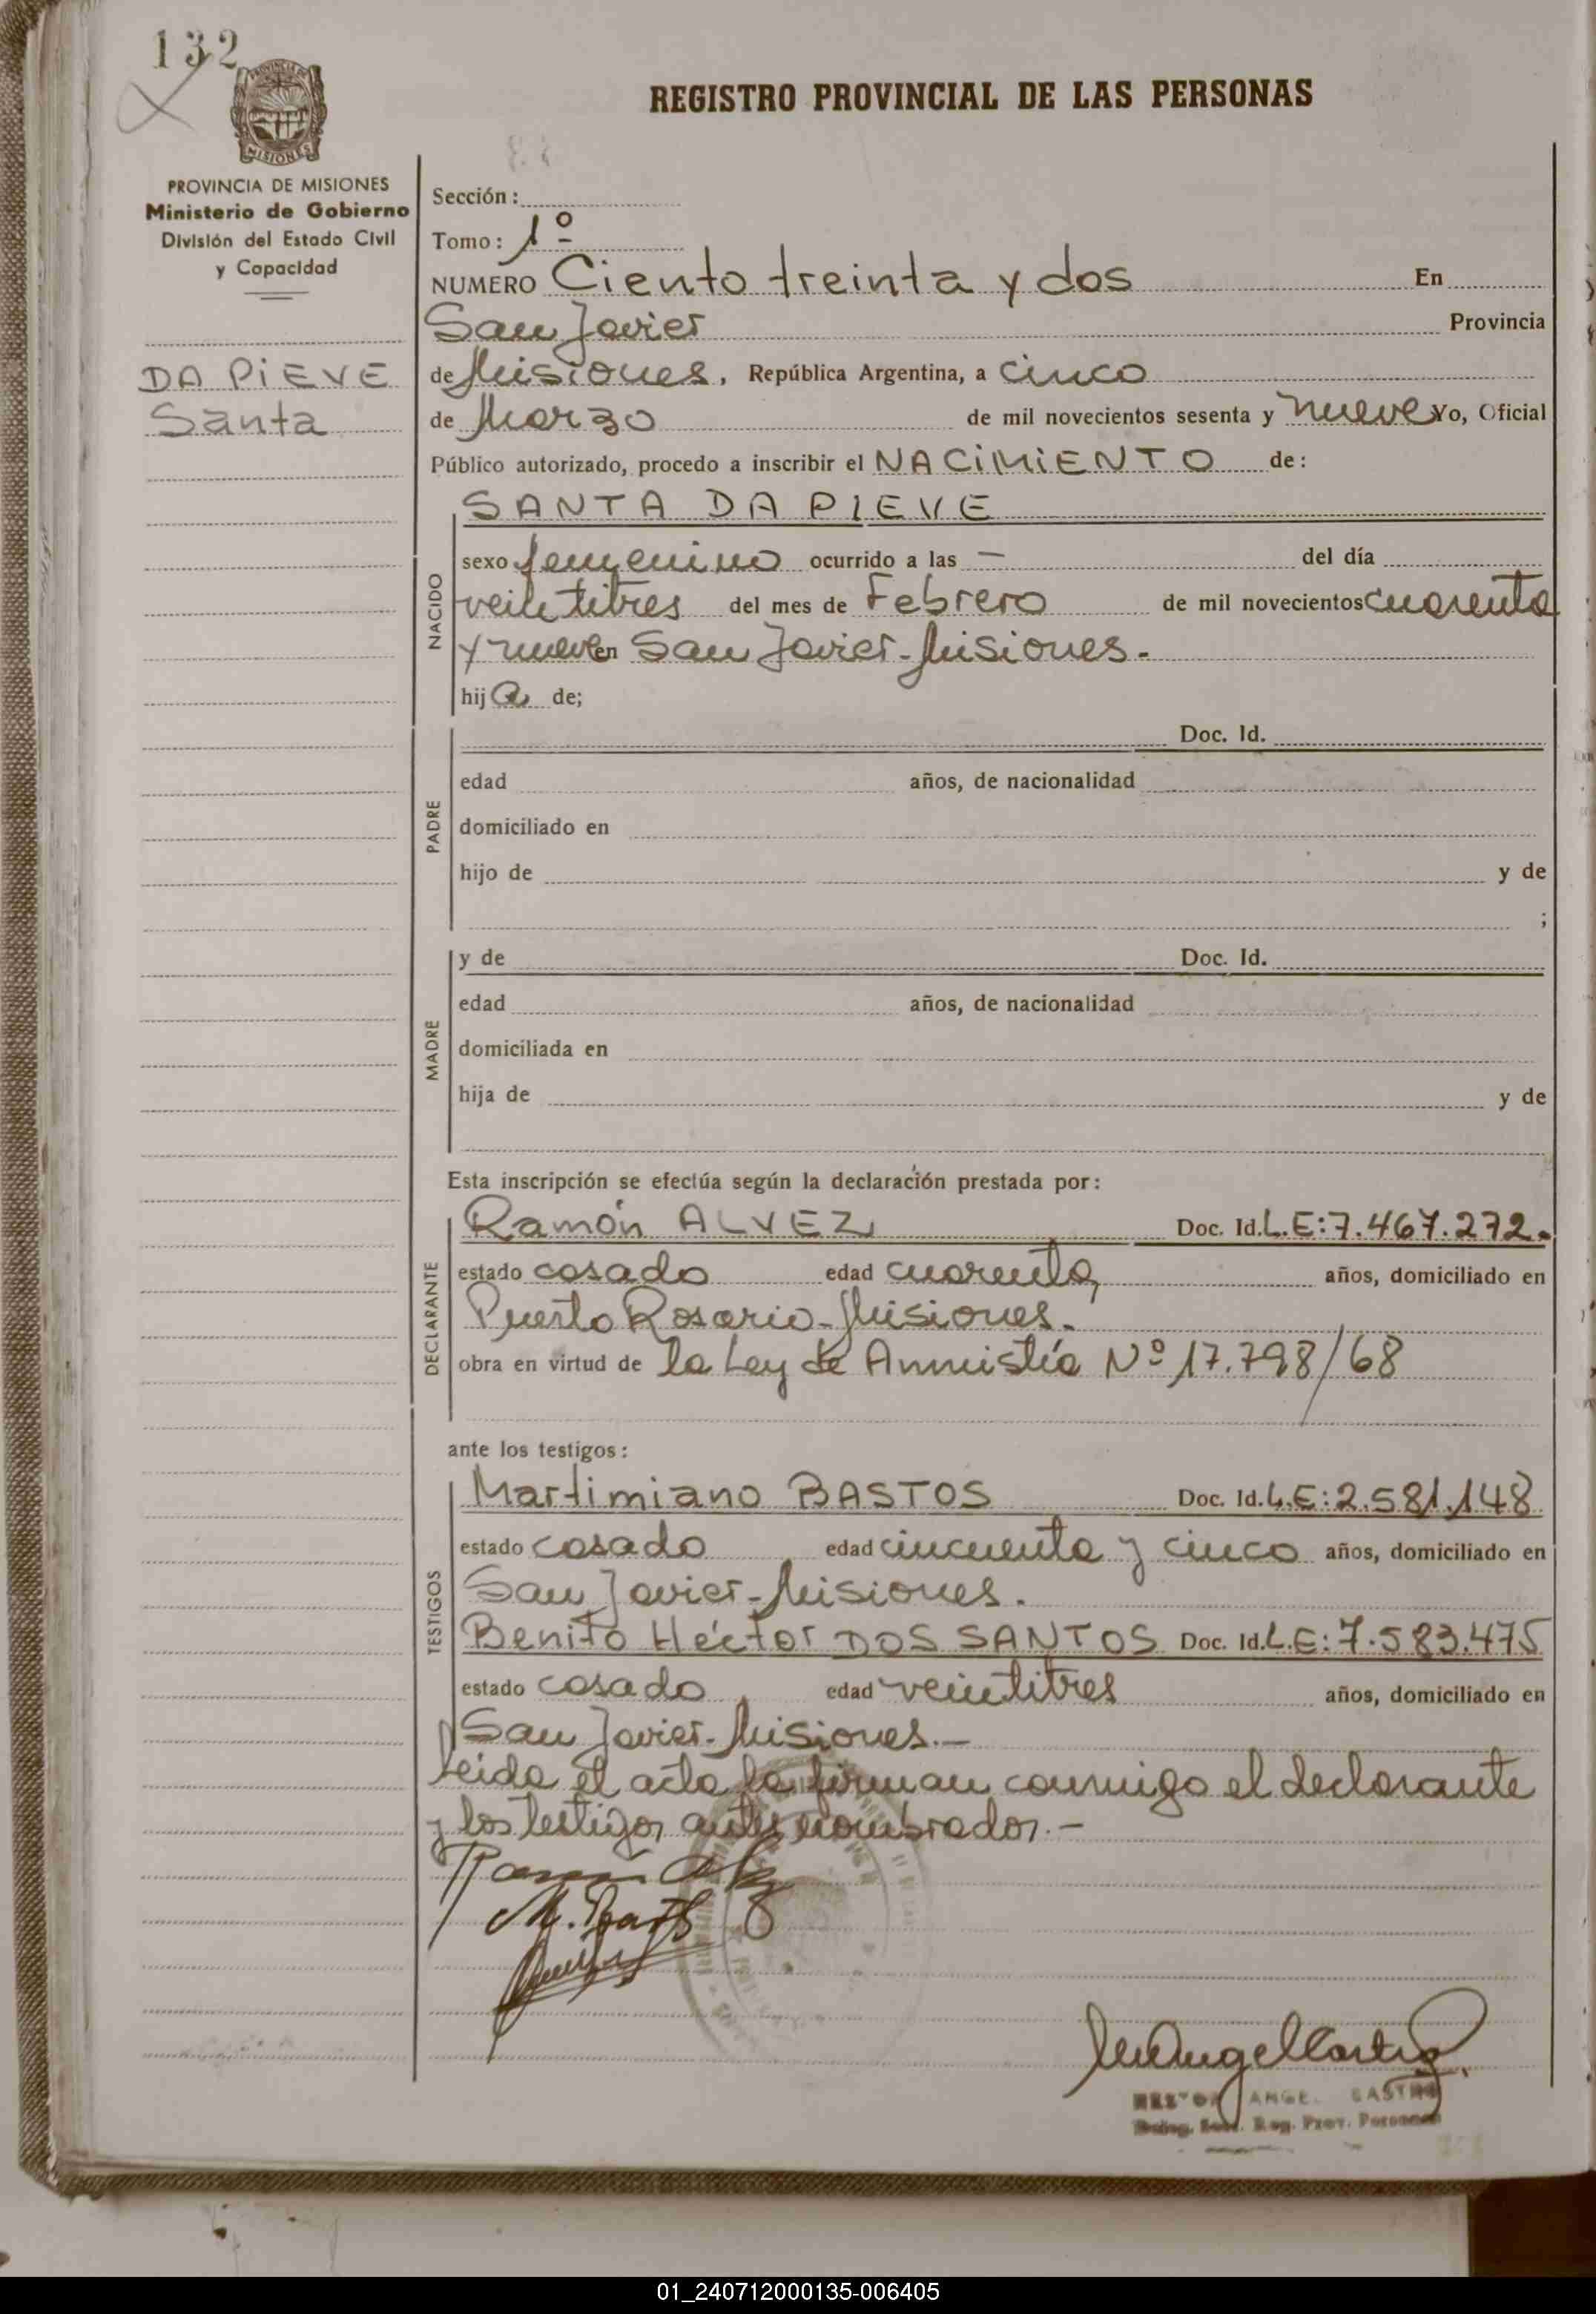 132
PROVINCIA DE
MISIONES
REGISTRO PROVINCIAL DE LAS PERSONAS
PROVINCIA DE MISIONES
Ministerio de Gobierno
División del Estado Civil
y Capacidad
DA PIEVE
Santa
Sección:
Tomo: 1º
NUMERO Ciento treinta y dos En
San Javier Provincia
de Misiones, República Argentina, a cinco
de Marzo de mil novecientos sesenta y nueve Yo, Oficial
Público autorizado, procedo a inscribir el NACIMIENTO de:
NACIDO
SANTA DA PIEVE
sexo femenino ocurrido a las — del día
veintitres del mes de Febrero de mil novecientos cuarenta
y nueve en San Javier - Misiones.-
hija de;
PADRE
Doc. Id.
edad años, de nacionalidad
domiciliado en
hijo de y de
;
MADRE
y de Doc. Id.
edad años, de nacionalidad
domiciliada en
hija de y de
Esta inscripción se efectúa según la declaración prestada por:
DECLARANTE
Ramón ALVEZ Doc. Id. L.E:7.467.272.
estado casado edad cuarenta años, domiciliado en
Puerto Rosario - Misiones.
obra en virtud de la Ley de Amnistía Nº 17.798/68
ante los testigos:
TESTIGOS
Martimiano BASTOS Doc. Id. L.E:2.581.148
estado casado edad cincuenta y cinco años, domiciliado en
San Javier - Misiones.
Benito Héctor DOS SANTOS Doc. Id. L.E:7.583.475
estado casado edad veintitres años, domiciliado en
San Javier - Misiones.—
Leida el acta la firman conmigo el declarante
y los testigos antes nombrados.—
ANGEL CASTRO
Reg. Prov. Personas
01_240712000135-006405